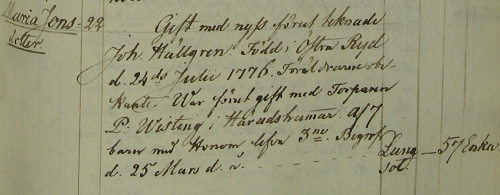 Maria Jons- 22 Gift med nyss förut teknade
dotter Joh. Hällgren. Född i Östra Ryd
d. 24de Julie 1776. Föräldrarne obe-
kante. War förut gift med Torparen
P. Wisting i Häradshamar. Af 7
barn med Honom lefva 3ne. Begrofs
d. 25 Mars d. å. Lung- 57 Enka.
sot.